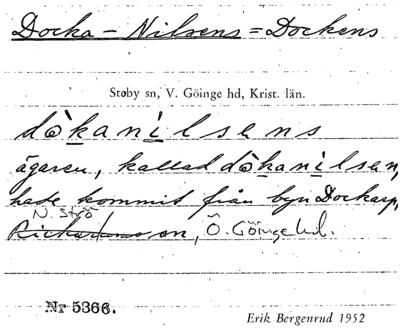 Docka-Nilsens = Dockens
Stoby sn, V. Göinge hd, Krist. län.
dò̀kanilsens
ägaren, kallad dò̀kanilsen,
hade kommit från byn Dockarp,
N. Strö
sn, Ö. Göinge hd.
Nr 5366.
Erik Bergenrud 1952